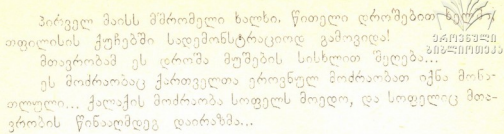 პირველ მაისს მშრომელი ხალხი, წითელი დროშებით ხელში
თფილისის ქუჩებში სადემონსტრაციოდ გამოვიდა!
მთავრობამ ეს დროშა მუშების სისხლით შეღება...
ეს მოძრაობაც ქართველთა ეროვნულ მოძრაობათ იქნა მონა-
თლული... ქალაქის მოძრაობა სოფელს მოედო, და სოფელიც მთა-
ვრობის წინააღმდეგ დაირაზმა...
ეროვნული
ბიბლიოთეკა